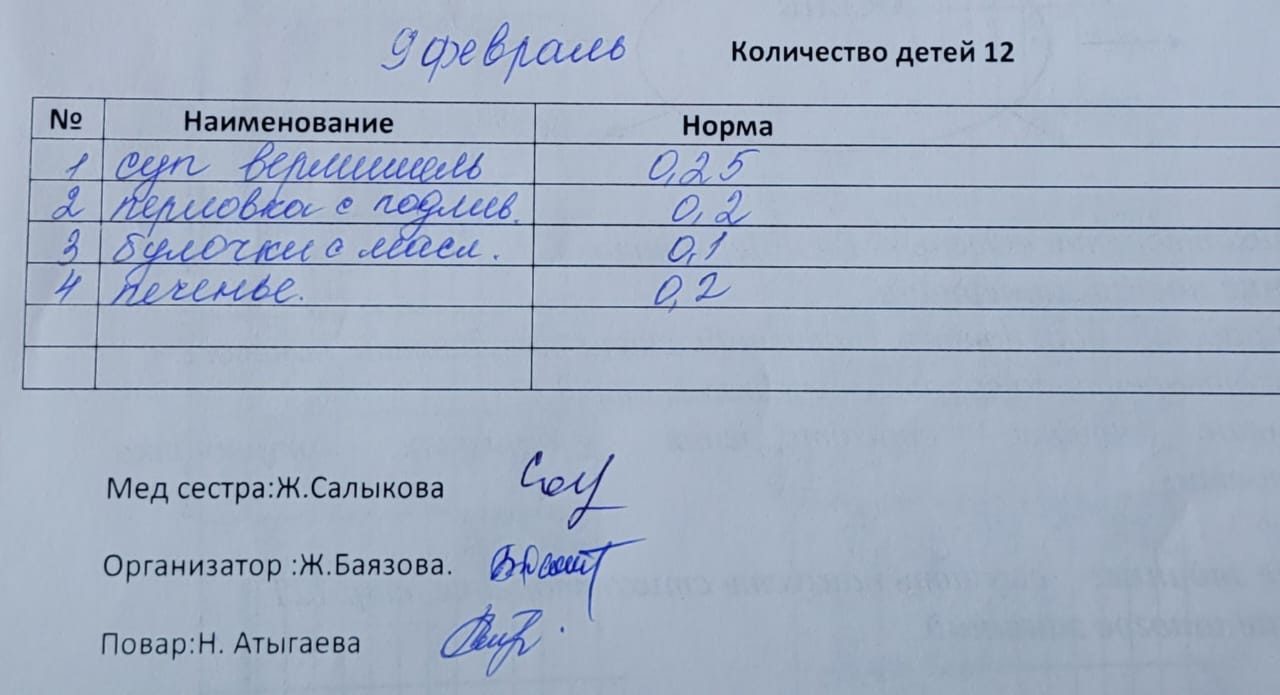 9 февраль Количество детей 12
№ Наименование Норма
1 суп вермишель 0,25
2 перловка с подлив. 0,2
3 булочки с масл. 0,1
4 печенье. 0,2
Мед сестра:Ж.Салыкова
Организатор :Ж.Баязова.
Повар:Н. Атыгаева